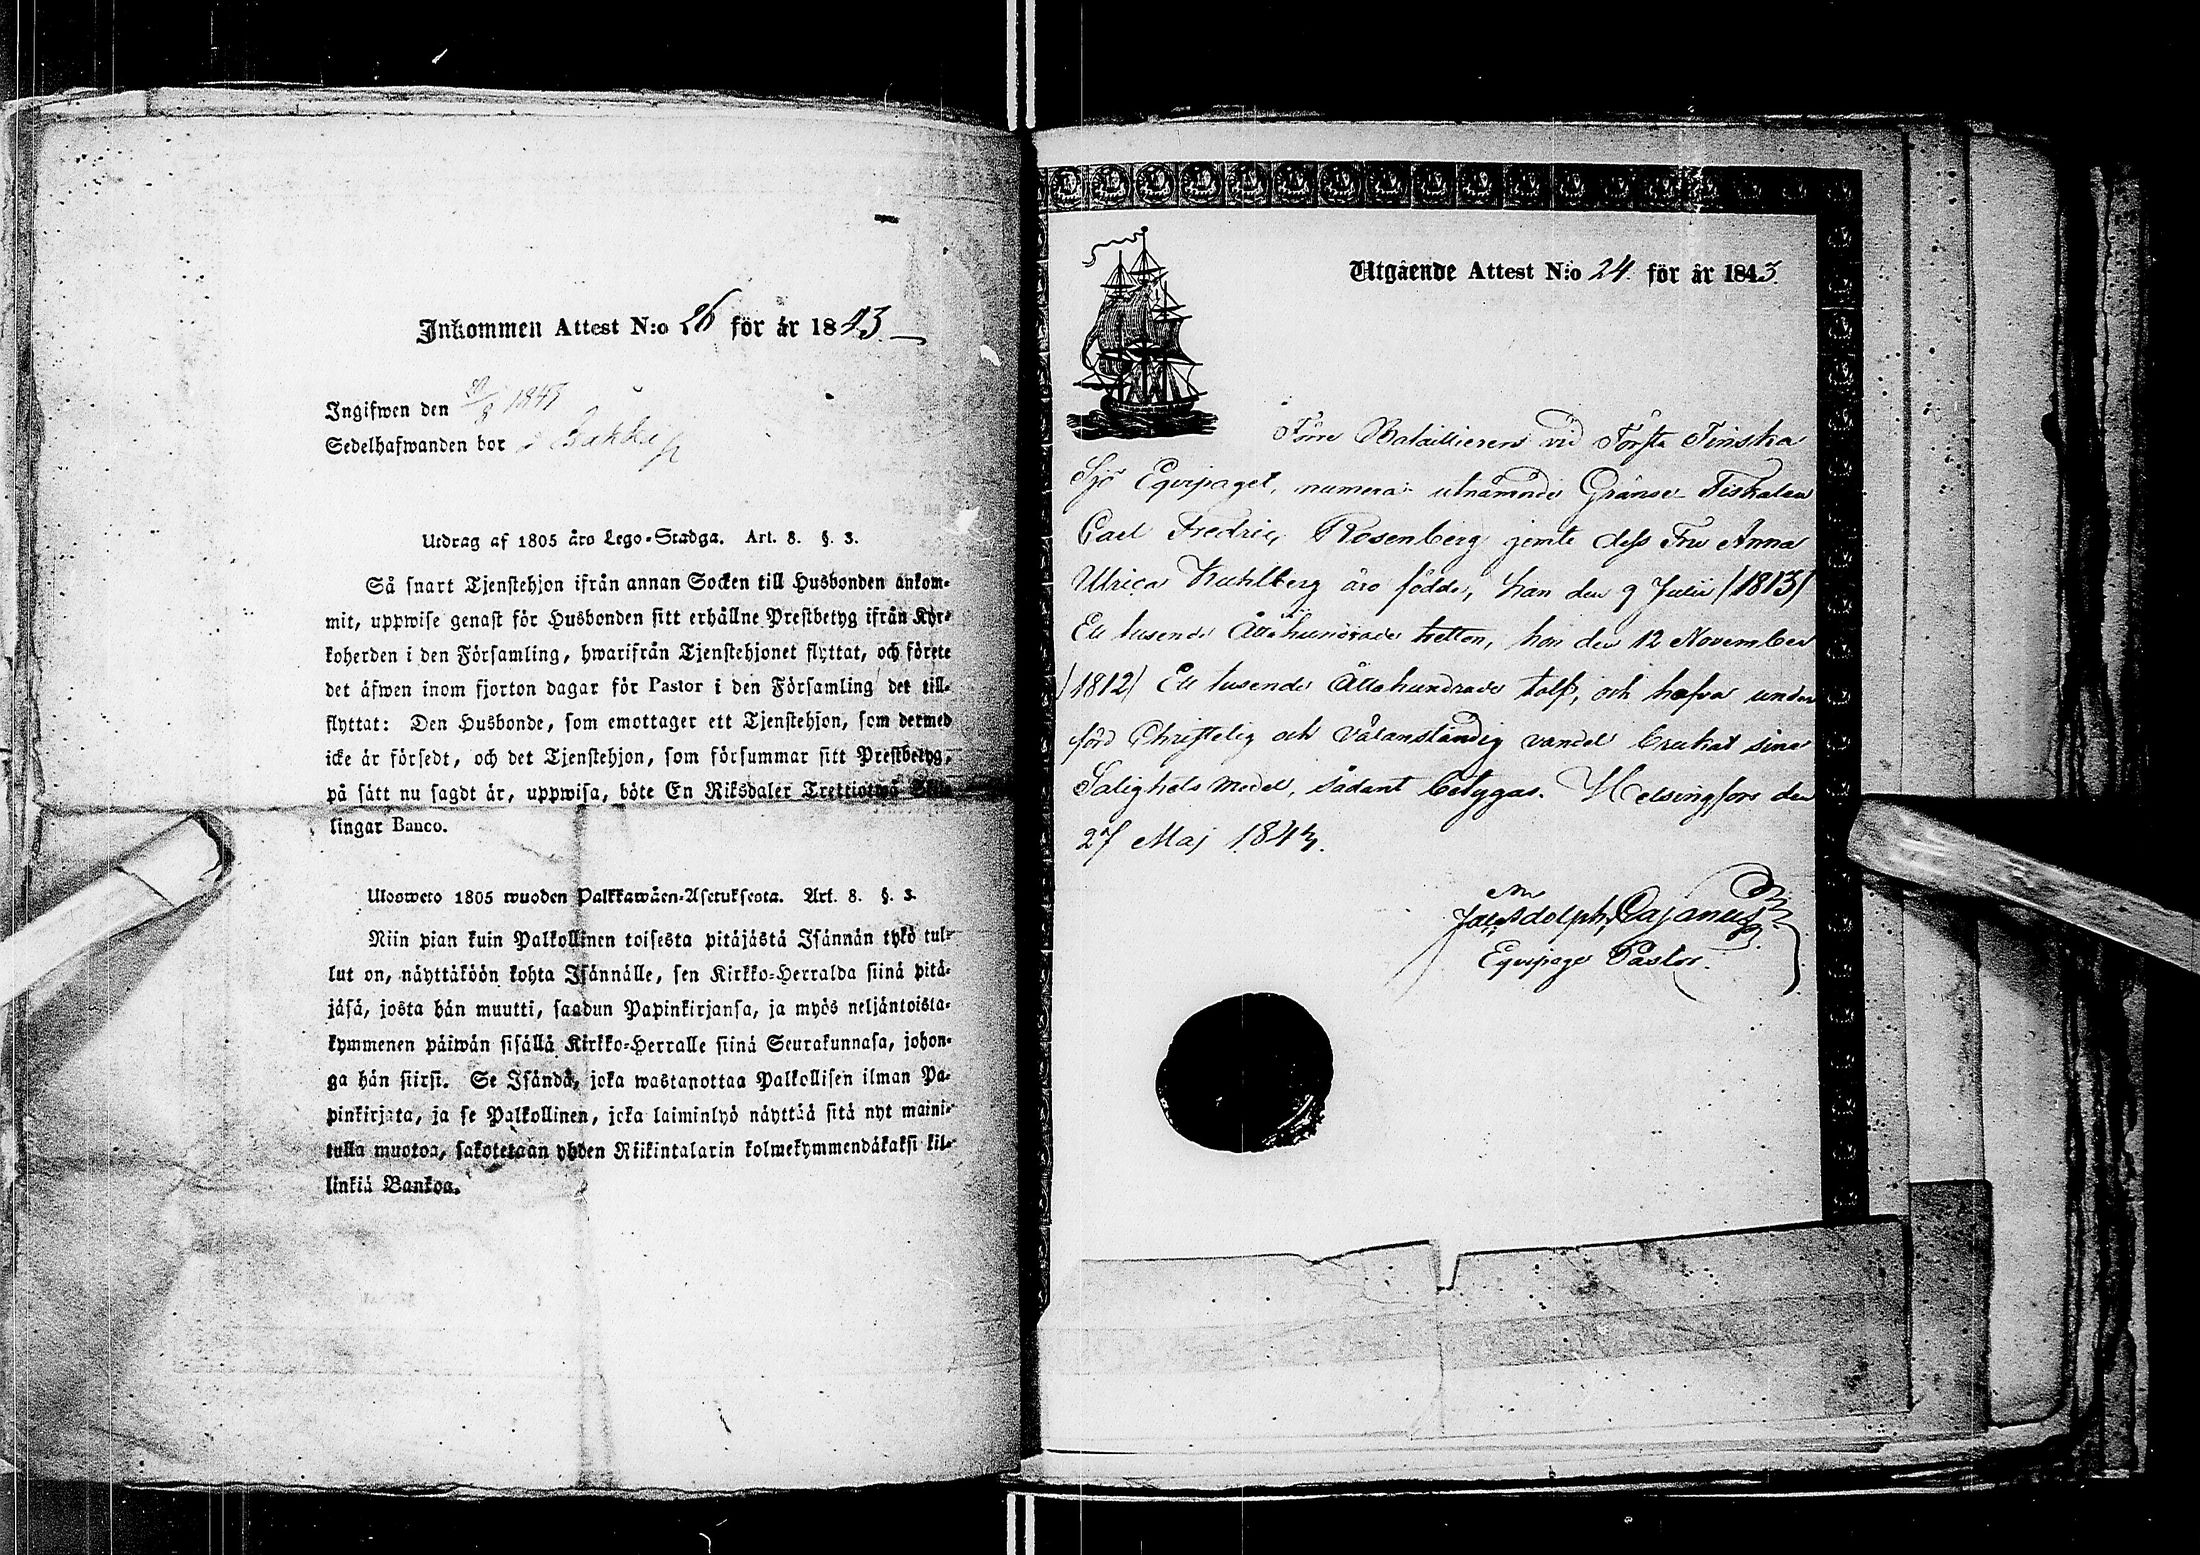 Inkommen Attest N:o 26 för år 1843.
Ingifwen den 30/8 1843
Sedelhafwanden bor i
Utdrag af 1805 års Lego-Stadga. Art. 8. §. 3.
Så snart Tjenstehjon ifrån annan Socken till Husbonden ankom-
mit, uppwise genast för Husbonden sitt erhållne Prestbetyg ifrån Kyr-
koherden i den Församling, hwarifrån Tjenstehjonet flyttat, och förete
det äfwen inom fjorton dagar för Pastor i den Församling det till-
flyttat: Den Husbonde, som emottager ett Tjenstehjon, som dermed
icke är försedt, och det Tjenstehjon, som försummar sitt Prestbetyg,
på sätt nu sagdt är, uppwisa, böte En Riksdaler Trettiotwå Skil-
lingar Banco.
Uloswето 1805 wuoden Palkkawäen-Asetuksesta. Art. 8. §. 3.
Niin pian kuin Palkollinen toisesta pitäjästä Isännän tykö tul-
lut on, näyttäköön kohta Isännälle, sen Kirkko-Herralda siinä pitä-
jäsä, josta hän muutti, saadun Papinkirjansa, ja myös neljäntoista-
kymmenen päiwän sisällä Kirkko-Herralle siinä Seurakunnasa, johon-
ga hän siirsi. Se Isändä, joka wastanottaa Palkollisen ilman Pa-
pinkirjata, ja se Palkollinen, joka laiminlyö näyttää sitä nyt maini-
tulla muotoa, sakotetaan yhden Riikintalarin kolmekymmendäkaksi kil-
linkiä Bankoa.
Utgående Attest N:o 24 för år 1843.
Förre Bataillieren vid Första Finska
Sjö Equipaget, numera utnämnde Gränse-Fiskalen
Carl Fredric Rosenberg jemte dess Fru Anna
Ulrica Kuhlberg äro födde, han den 9 Julii /1813/
Ett tusende Åttahundrade tretton, hon den 12 November
/1812/ Ett tusende Åttahundrade tolf, och hafva under
förd Christelig och Välanständig vandel brukat sine
Salighets medel, sådant betygas. Helsingfors den
27 Maj 1843.
Adolph Cajanus
Equipage Pastor.